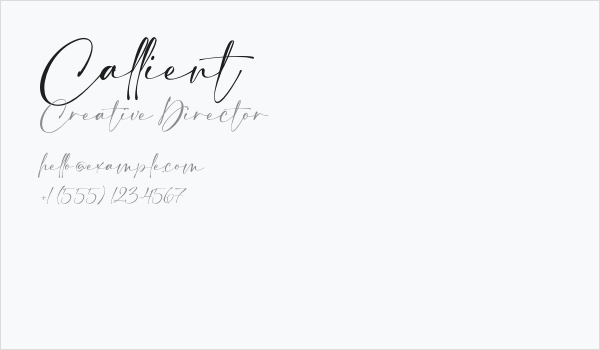 Callient
Creative Director
hello@example.com
+1 (555) 123-4567